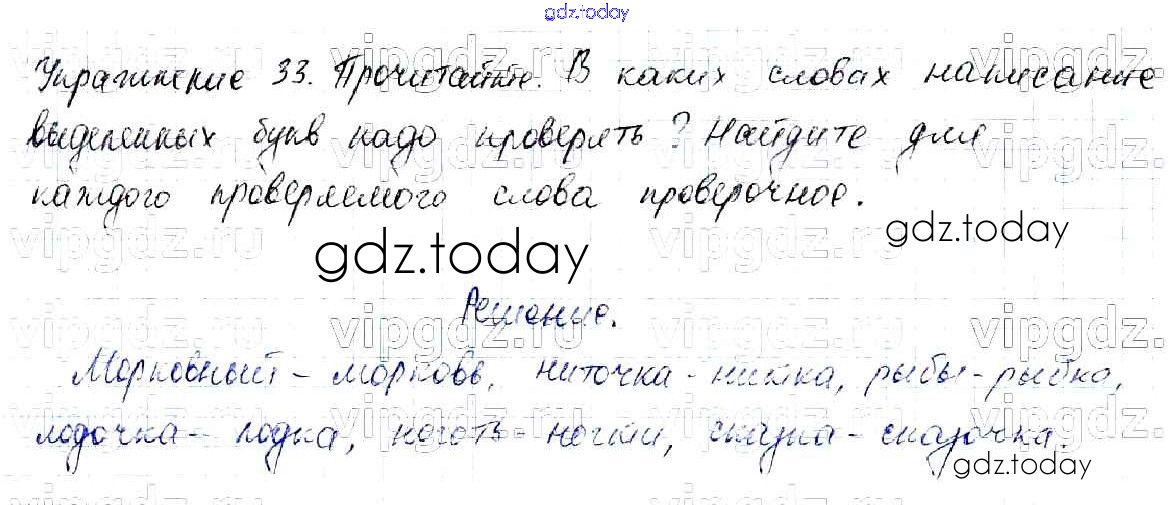 gdz.today
vipgdz.ru vipgdz.ru vipgdz.ru vipgdz.
Упражнение 33. Прочитайте. В каких словах написание
выделенных букв надо проверять? Найдите для
каждого проверяемого слова проверочное.
gdz.today
gdz.today
Решение.
Морковный - морковь, ниточка - нитка, рыбы - рыбка,
лодочка - лодка, ноготь - ногти, сказка - сказочка.
gdz.today